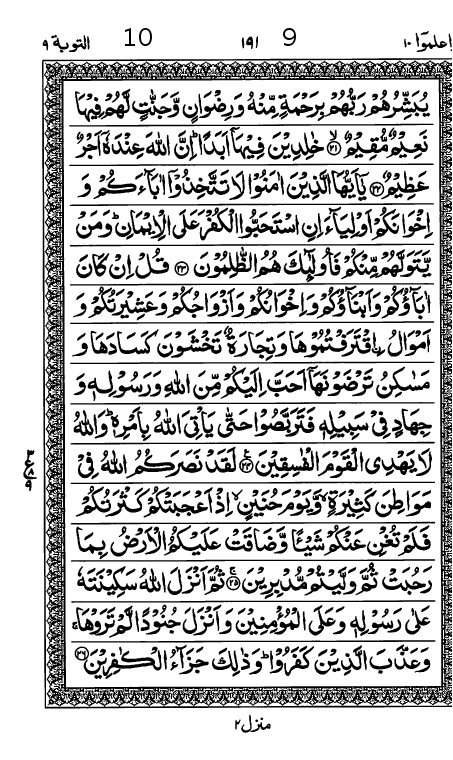 اعلموٓا ١٠ 9 ١٩١ 10 التوبة ٩
يُبَشِّرُهُمْ رَبُّهُمْ بِرَحْمَةٍ مِّنْهُ وَرِضْوَانٍ وَّجَنّٰتٍ لَّهُمْ فِيْهَا
نَعِيْمٌ مُّقِيْمٌ ﴿٢١﴾ خٰلِدِيْنَ فِيْهَاۤ اَبَدًا ؕ اِنَّ اللّٰهَ عِنْدَهٗۤ اَجْرٌ
عَظِيْمٌ ﴿٢٢﴾ يٰۤاَيُّهَا الَّذِيْنَ اٰمَنُوْا لَا تَتَّخِذُوْۤا اٰبَآءَكُمْ وَ
اِخْوَانَكُمْ اَوْلِيَآءَ اِنِ اسْتَحَبُّوا الْكُفْرَ عَلَى الْاِيْمَانِ ؕ وَمَنْ
يَّتَوَلَّهُمْ مِّنْكُمْ فَاُولٰٓئِكَ هُمُ الظّٰلِمُوْنَ ﴿٢٣﴾ قُلْ اِنْ كَانَ
اٰبَآؤُكُمْ وَاَبْنَآؤُكُمْ وَاِخْوَانُكُمْ وَاَزْوَاجُكُمْ وَعَشِيْرَتُكُمْ وَ
اَمْوَالُ ۨاقْتَرَفْتُمُوْهَا وَتِجَارَةٌ تَخْشَوْنَ كَسَادَهَا وَ
مَسٰكِنُ تَرْضَوْنَهَاۤ اَحَبَّ اِلَيْكُمْ مِّنَ اللّٰهِ وَرَسُوْلِهٖ وَ
جِهَادٍ فِيْ سَبِيْلِهٖ فَتَرَبَّصُوْا حَتّٰى يَاْتِيَ اللّٰهُ بِاَمْرِهٖ ؕ وَاللّٰهُ
لَا يَهْدِى الْقَوْمَ الْفٰسِقِيْنَ ﴿٢٤﴾ لَقَدْ نَصَرَكُمُ اللّٰهُ فِيْ
مَوَاطِنَ كَثِيْرَةٍ ۙ وَّيَوْمَ حُنَيْنٍ ۙ اِذْ اَعْجَبَتْكُمْ كَثْرَتُكُمْ
فَلَمْ تُغْنِ عَنْكُمْ شَيْئًا وَّضَاقَتْ عَلَيْكُمُ الْاَرْضُ بِمَا
رَحُبَتْ ثُمَّ وَلَّيْتُمْ مُّدْبِرِيْنَ ﴿٢٥﴾ ثُمَّ اَنْزَلَ اللّٰهُ سَكِيْنَتَهٗ
عَلٰى رَسُوْلِهٖ وَعَلَى الْمُؤْمِنِيْنَ وَاَنْزَلَ جُنُوْدًا لَّمْ تَرَوْهَا ۚ
وَعَذَّبَ الَّذِيْنَ كَفَرُوْا ؕ وَذٰلِكَ جَزَآءُ الْكٰفِرِيْنَ ﴿٢٦﴾
منزل ٢